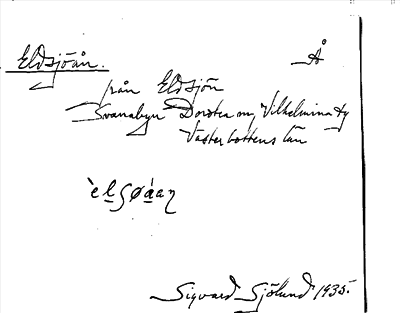 Eldsjöån.
Å
från Eldsjön
Svanabyn Dorotea sn, Vilhelmina tg
Västerbottens län
`el̲ʃøa̲aŋ
Sigvard Sjölund 1935.